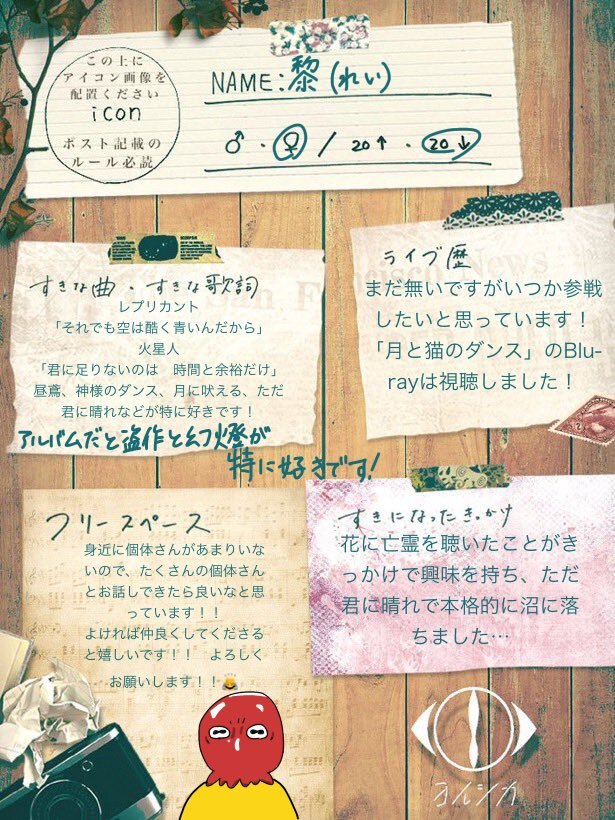 この上に
アイコン画像を
配置ください
icon
ポスト記載の
ルール必読
NAME:黎(れい)
♂・♀/20↑・20↓
すきな曲・すきな歌詞
レプリカント
「それでも空は酷く青いんだから」
火星人
「君に足りないのは　時間と余裕だけ」
昼鳶、神様のダンス、月に吠える、ただ
君に晴れなどが特に好きです！
アルバムだと盗作と幻燈が
特に好きです!
ライブ歴
まだ無いですがいつか参戦
したいと思っています！
「月と猫のダンス」のBlu-
rayは視聴しました！
フリースペース
身近に個体さんがあまりいな
いので、たくさんの個体さん
とお話しできたら良いなと思
っています！！
よければ仲良くしてくださる
と嬉しいです！！　よろしく
お願いします！！
すきになったきっかけ
花に亡霊を聴いたことがき
っかけで興味を持ち、ただ
君に晴れで本格的に沼に落
ちました…
ヨルシカ